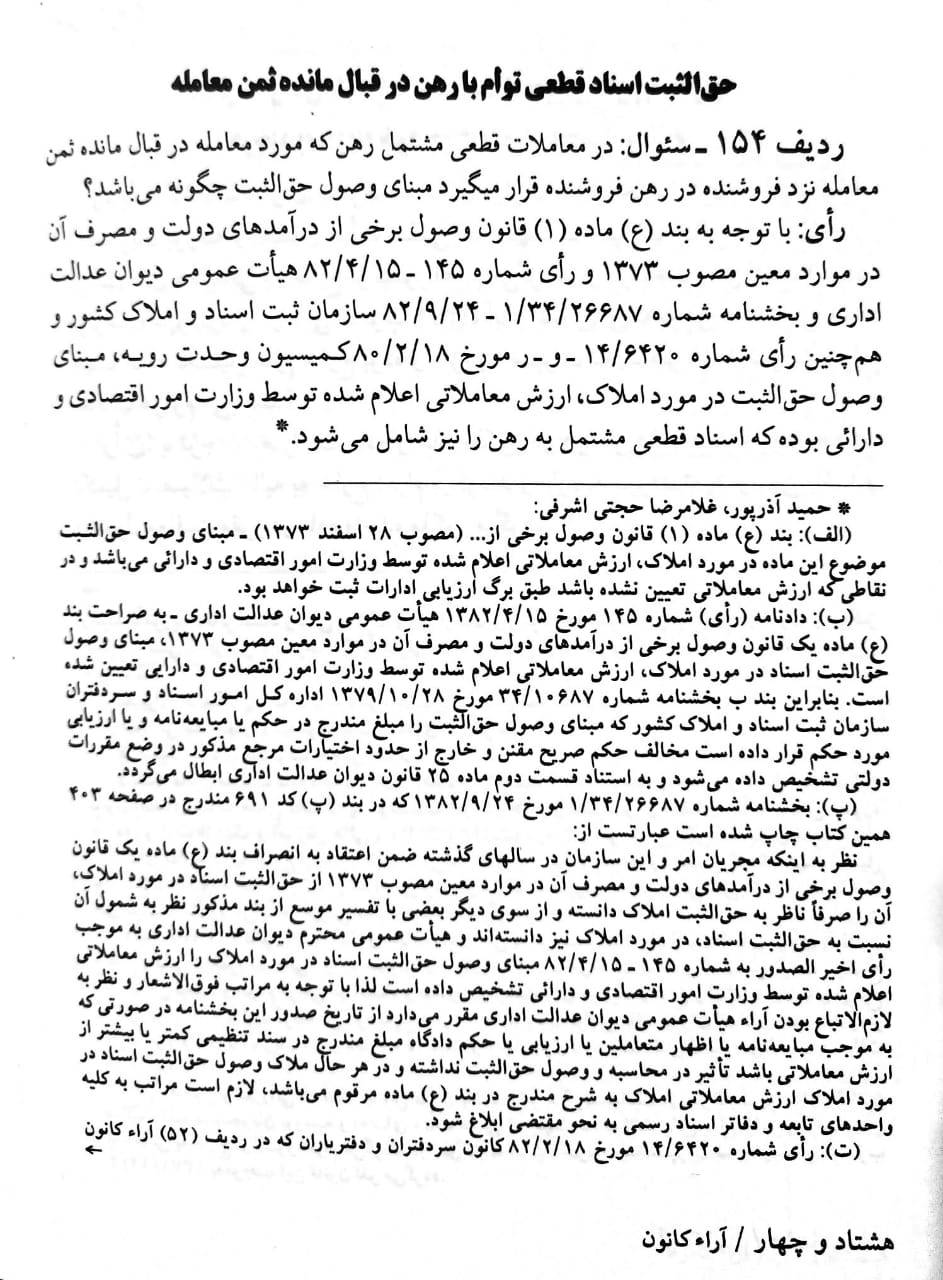 حق‌الثبت اسناد قطعی توأم با رهن در قبال مانده ثمن معامله
ردیف ۱۵۴ ـ سئوال: در معاملات قطعی مشتمل رهن که مورد معامله در قبال مانده ثمن
معامله نزد فروشنده در رهن فروشنده قرار میگیرد مبنای وصول حق‌الثبت چگونه می‌باشد؟
رأی: با توجه به بند (ع) ماده (۱) قانون وصول برخی از درآمدهای دولت و مصرف آن
در موارد معین مصوب ۱۳۷۳ و رأی شماره ۱۴۵ ـ ۸۲/۴/۱۵ هیأت عمومی دیوان عدالت
اداری و بخشنامه شماره ۱/۳۴/۲۶۶۸۷ ـ ۸۲/۹/۲۴ سازمان ثبت اسناد و املاک کشور و
هم‌چنین رأی شماره ۱۴/۶۴۲۰ ـ و ـ ر مورخ ۸۰/۲/۱۸ کمیسیون وحدت رویه، مبنای
وصول حق‌الثبت در مورد املاک، ارزش معاملاتی اعلام شده توسط وزارت امور اقتصادی و
دارائی بوده که اسناد قطعی مشتمل به رهن را نیز شامل می‌شود.*
* حمید آذرپور، غلامرضا حجتی اشرفی:
(الف): بند (ع) ماده (۱) قانون وصول برخی از... (مصوب ۲۸ اسفند ۱۳۷۳) ـ مبنای وصول حق‌الثبت
موضوع این ماده در مورد املاک، ارزش معاملاتی اعلام شده توسط وزارت امور اقتصادی و دارائی می‌باشد و در
نقاطی که ارزش معاملاتی تعیین نشده باشد طبق برگ ارزیابی ادارات ثبت خواهد بود.
(ب): دادنامه (رأی) شماره ۱۴۵ مورخ ۱۳۸۲/۴/۱۵ هیأت عمومی دیوان عدالت اداری ـ به صراحت بند
(ع) ماده یک قانون وصول برخی از درآمدهای دولت و مصرف آن در موارد معین مصوب ۱۳۷۳، مبنای وصول
حق‌الثبت اسناد در مورد املاک، ارزش معاملاتی اعلام شده توسط وزارت امور اقتصادی و دارایی تعیین شده
است. بنابراین بند ب بخشنامه شماره ۳۴/۱۰۶۸۷ مورخ ۱۳۷۹/۱۰/۲۸ اداره کل امور اسناد و سردفتران
سازمان ثبت اسناد و املاک کشور که مبنای وصول حق‌الثبت را مبلغ مندرج در حکم یا مبایعه‌نامه و یا ارزیابی
مورد حکم قرار داده است مخالف حکم صریح مقنن و خارج از حدود اختیارات مرجع مذکور در وضع مقررات
دولتی تشخیص داده می‌شود و به استناد قسمت دوم ماده ۲۵ قانون دیوان عدالت اداری ابطال می‌گردد.
(پ): بخشنامه شماره ۱/۳۴/۲۶۶۸۷ مورخ ۱۳۸۲/۹/۲۴ که در بند (پ) کد ۶۹۱ مندرج در صفحه ۴۰۳
همین کتاب چاپ شده است عبارتست از:
نظر به اینکه مجریان امر و این سازمان در سالهای گذشته ضمن اعتقاد به انصراف بند (ع) ماده یک قانون
وصول برخی از درآمدهای دولت و مصرف آن در موارد معین مصوب ۱۳۷۳ از حق‌الثبت اسناد در مورد املاک،
آن را صرفاً ناظر به حق‌الثبت املاک دانسته و از سوی دیگر بعضی با تفسیر موسع از بند مذکور نظر به شمول آن
نسبت به حق‌الثبت اسناد، در مورد املاک نیز دانسته‌اند و هیأت عمومی محترم دیوان عدالت اداری به موجب
رأی اخیر الصدور به شماره ۱۴۵ ـ ۸۲/۴/۱۵ مبنای وصول حق‌الثبت اسناد در مورد املاک را ارزش معاملاتی
اعلام شده توسط وزارت امور اقتصادی و دارائی تشخیص داده است لذا با توجه به مراتب فوق‌الاشعار و نظر به
لازم‌الاتباع بودن آراء هیأت عمومی دیوان عدالت اداری مقرر می‌دارد از تاریخ صدور این بخشنامه در صورتی که
به موجب مبایعه‌نامه یا اظهار متعاملین یا ارزیابی یا حکم دادگاه مبلغ مندرج در سند تنظیمی کمتر یا بیشتر از
ارزش معاملاتی باشد تأثیر در محاسبه و وصول حق‌الثبت نداشته و در هر حال ملاک وصول حق‌الثبت اسناد در
مورد املاک ارزش معاملاتی املاک به شرح مندرج در بند (ع) ماده مرقوم می‌باشد، لازم است مراتب به کلیه
واحدهای تابعه و دفاتر اسناد رسمی به نحو مقتضی ابلاغ شود.
(ت): رأی شماره ۱۴/۶۴۲۰ مورخ ۸۲/۲/۱۸ کانون سردفتران و دفتریاران که در ردیف (۵۲) آراء کانون
←
هشتاد و چهار / آراء کانون